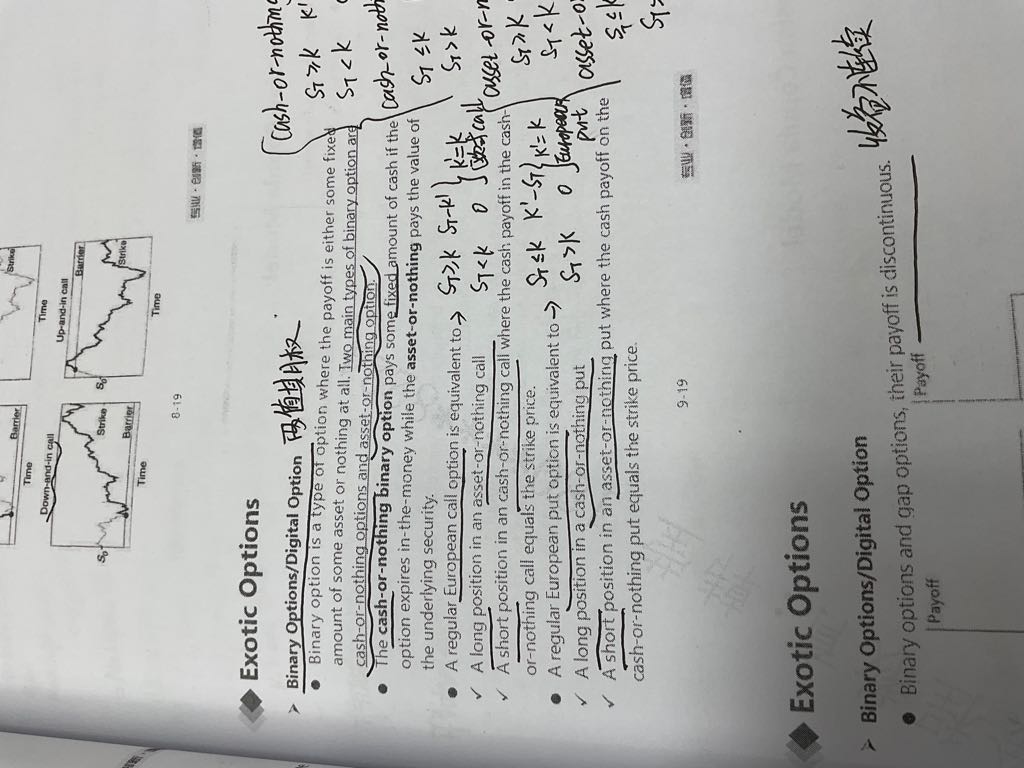 Strike
Time
Barrier
Time
Up-and-in call
Barrier
S0
Strike
Time
Down-and-in call
S0
Strike
Barrier
Time
8-19
专业·创新·增值
Exotic Options
➢ Binary Options/Digital Option 两值期权
● Binary option is a type of option where the payoff is either some fixed
amount of some asset or nothing at all. Two main types of binary option are
cash-or-nothing options and asset-or-nothing option.
● The cash-or-nothing binary option pays some fixed amount of cash if the
option expires in-the-money while the asset-or-nothing pays the value of
the underlying security.
● A regular European call option is equivalent to →
✓ A long position in an asset-or-nothing call
✓ A short position in an cash-or-nothing call where the cash payoff in the cash-
or-nothing call equals the strike price.
● A regular European put option is equivalent to →
✓ A long position in a cash-or-nothing put
✓ A short position in an asset-or-nothing put where the cash payoff on the
cash-or-nothing put equals the strike price.
ST≥K ST-K' } K'=K
ST<K 0 call
ST≤K K'-ST } K'=K
ST>K 0 European put
cash-or-nothing
ST≥K K'
ST<K
cash-or-noth
ST≤K
ST>K
asset-or-n
ST≥K
ST<K
asset-o
ST≤K
ST>
9-19
专业·创新·增值
Exotic Options
➢ Binary Options/Digital Option
● Binary options and gap options, their payoff is discontinuous. 收益不连续
Payoff
Payoff